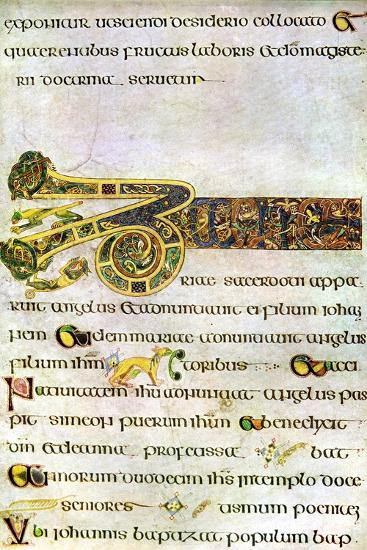 exponitur utsciendi desiderio collocato Et
quaerentibus fructus laboris Etdo magiste
rii doctrina seruetur
Zacha
riae sacerdoti appa
ruit angelus Etadnuntiauit ei filium ioha
nem Etidem mariae adnuntiauit angelus
filium ihm toribus Etacci
Natiuitatem ihu adnuntiat angelus pas
pit simeon puerum ihm Etbenedicit
dm Etdeanna professa bat
annorum duodecim ihs intemplo doce
seniores tismum poenitet
Ubi iohannis baptizat populum bap